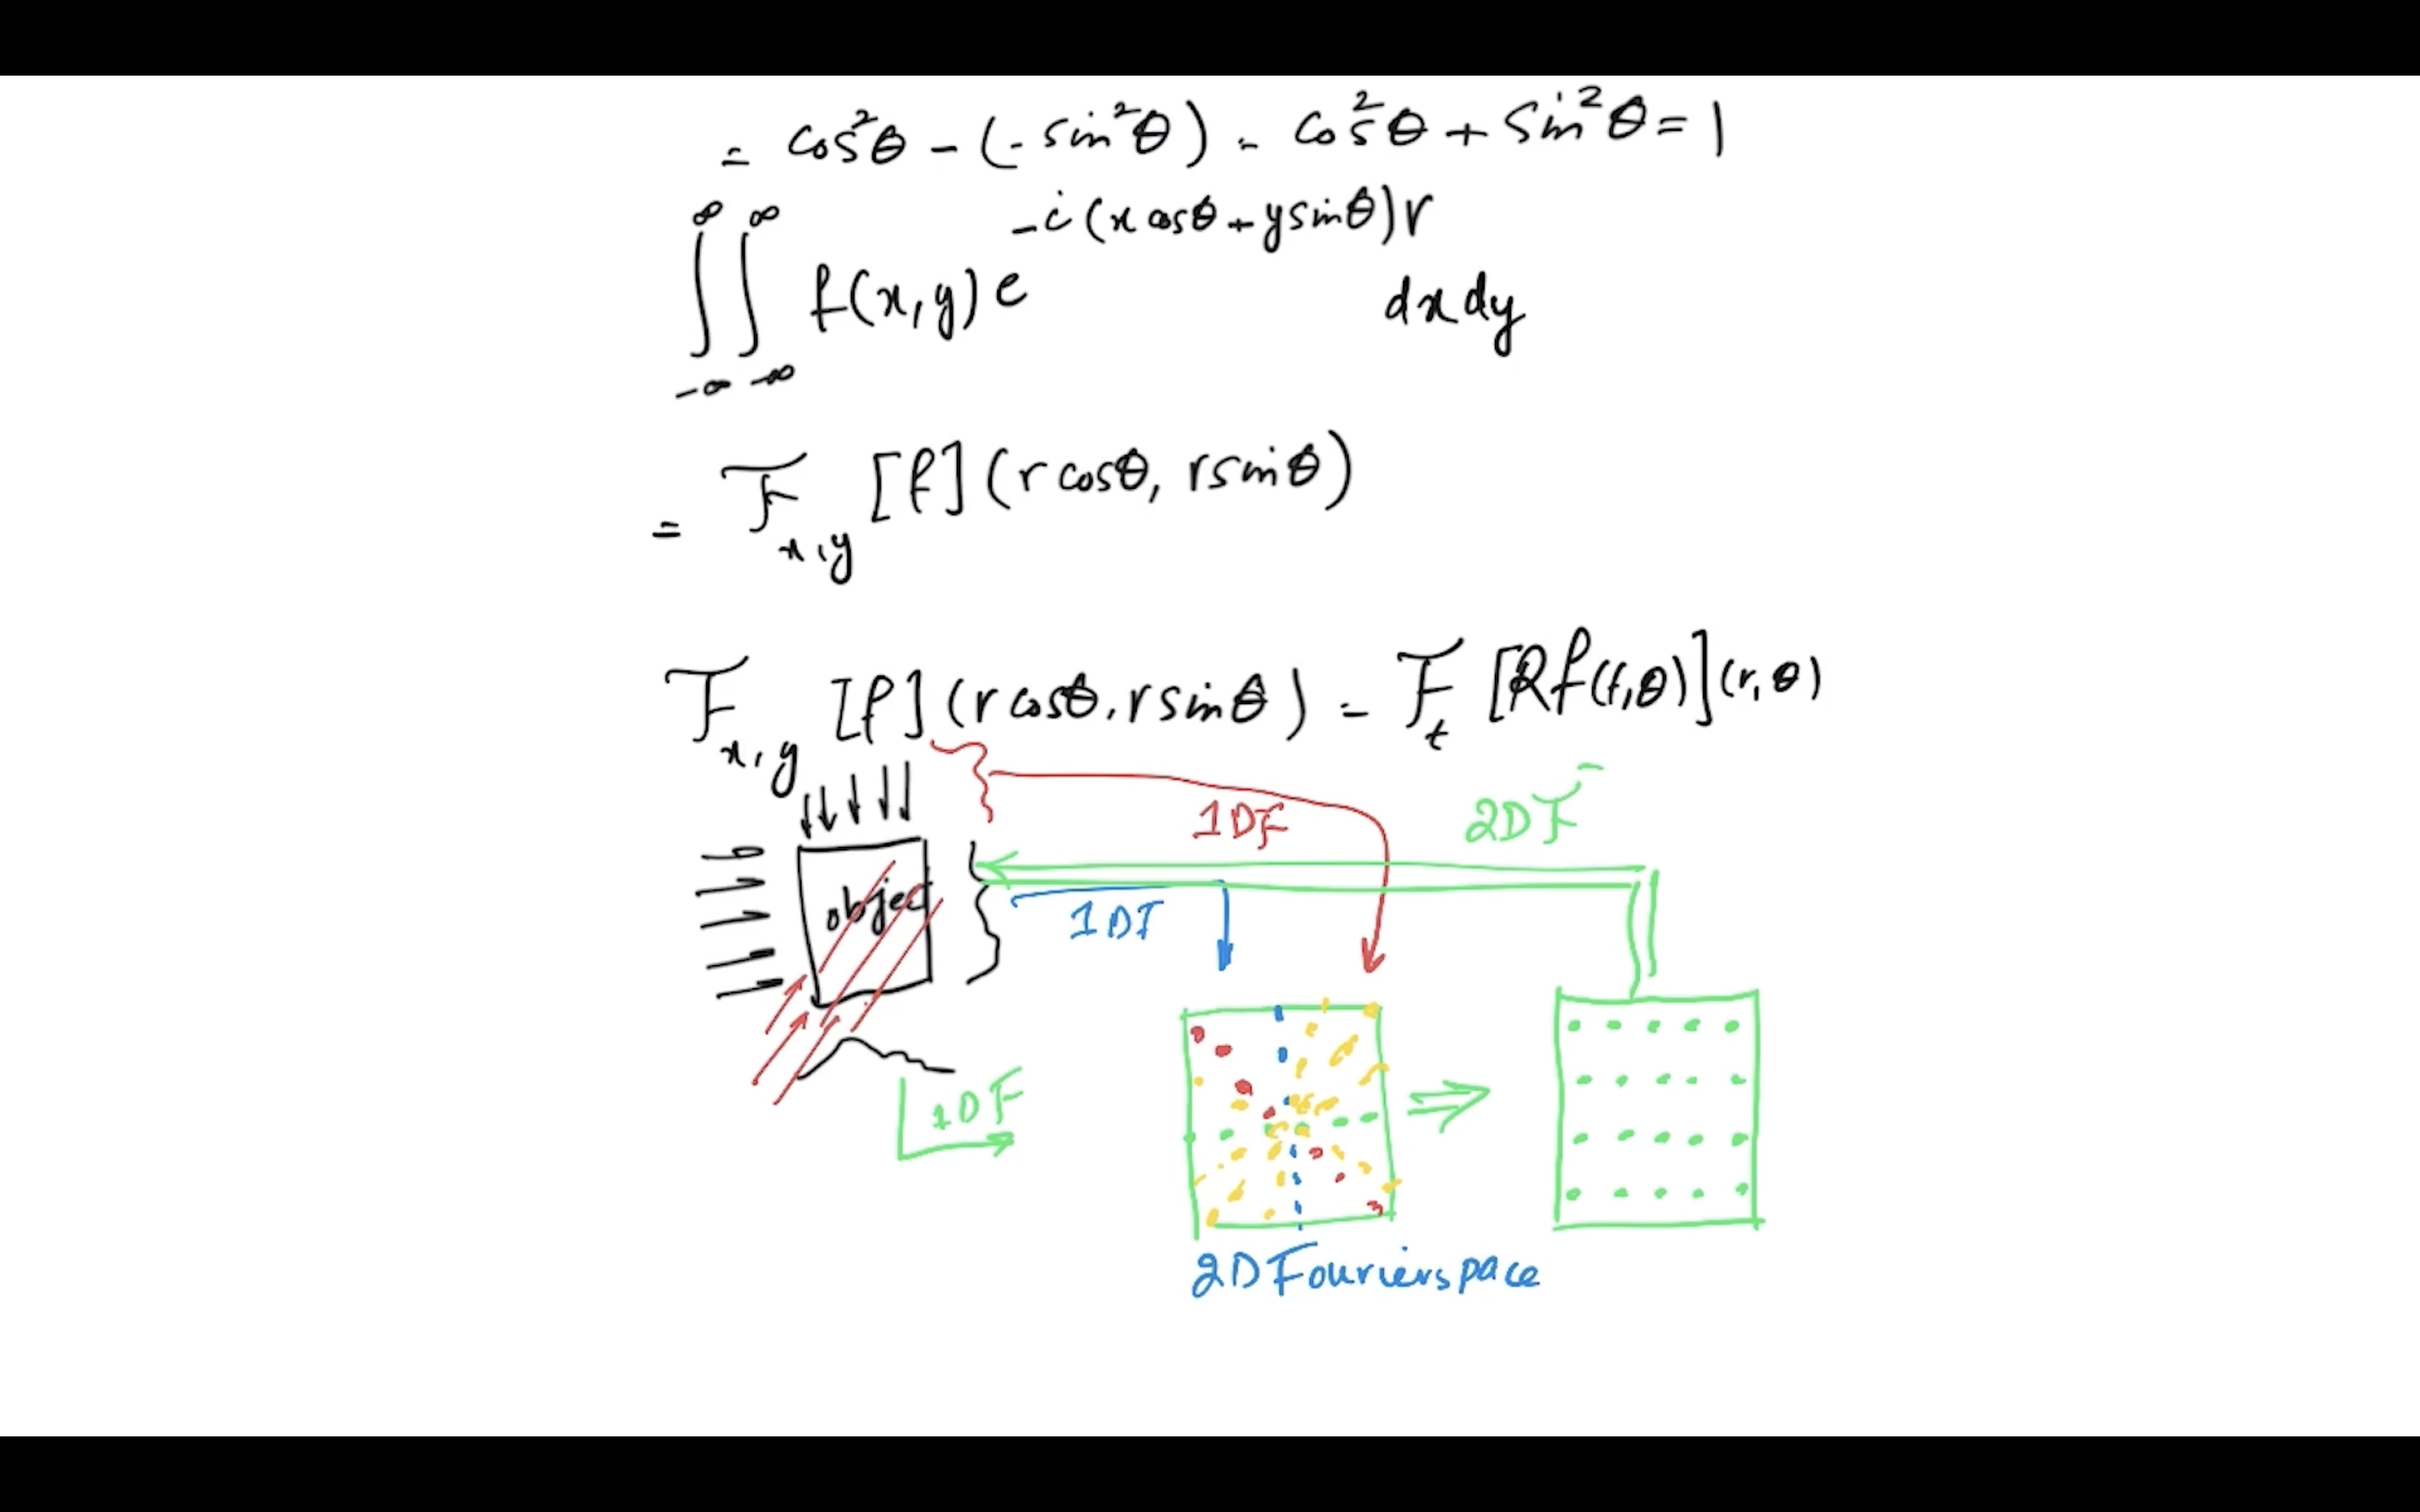 = cos²θ - (- sin²θ) = cos²θ + sin²θ = 1
∫_{-∞}^{∞} ∫_{-∞}^{∞} f(x,y) e^{-i(x cosθ + y sinθ)r} dx dy
= F_{x,y} [f] (r cosθ, r sinθ)
F_{x,y} [f] (r cosθ, r sinθ) = F_t [Rf(t,θ)] (r,θ)
1DF
2DF
object
1DF
1DF
2D Fourier space